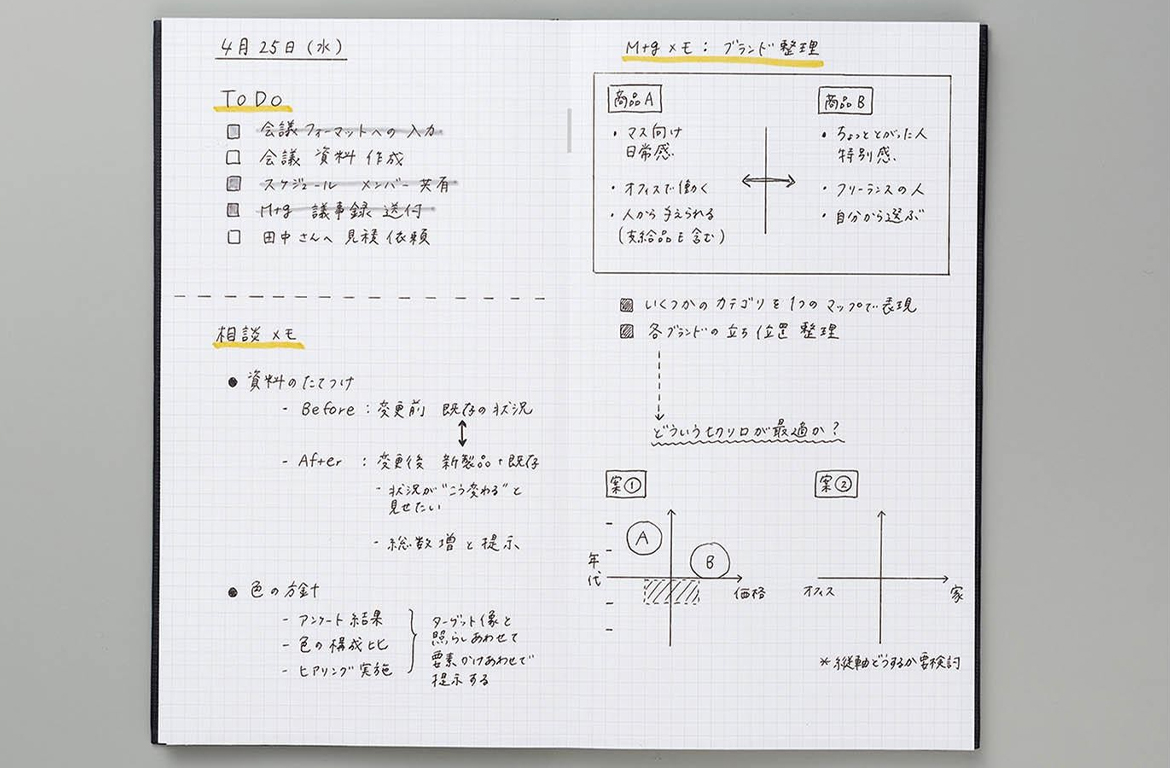 4月25日(水)
ToDo
会議フォーマットへの入力
会議 資料 作成
スケジュール メンバー 共有
Mtg 議事録 送付
田中さんへ 見積 依頼
相談メモ
● 資料のたてつけ
- Before : 変更前 既存の状況
- After : 変更後 新製品+既存
- 状況が"こう変わる"と
見せたい
- 総数増と提示
● 色の方針
- アンケート結果
- 色の構成比
- ヒアリング実施
ターゲット像と
照らしあわせて
要素かけあわせで
提示する
Mtgメモ: ブランド整理
商品A
・マス向け
日常感
・オフィスで働く
・人から与えられる
(支給品も含む)
商品B
・ちょっととがった人
特別感
・フリーランスの人
・自分から選ぶ
いくつかのカテゴリを1つのマップで表現
各ブランドの立ち位置 整理
どういう切り口が最適か?
案①
A
B
年代
価格
案②
オフィス
家
*縦軸どうするか要検討